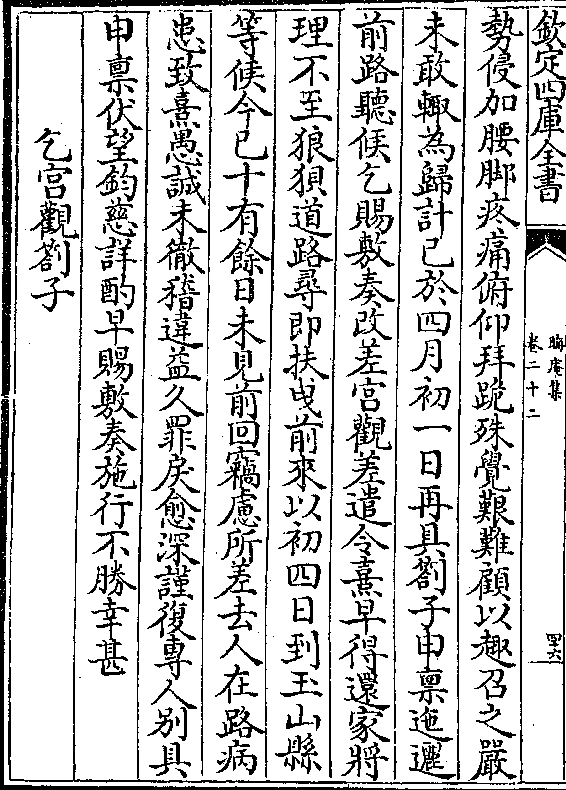 欽定四庫全書
晦庵集
卷二十二
四六
勢侵加腰脚疼痛俯仰拜跪殊覺艱難顧以趣召之嚴
未敢輒為歸計已於四月初一日再具劄子申禀迤邐
前路聽候乞賜敷奏改差宮觀差遣令熹早得還家將
理不至狼狽道路尋即扶曵前來以初四日到玉山縣
等候今已十有餘日未見前回竊慮所差去人在路病
患致熹愚誠未徹稽違益久罪戾愈深謹復專人别具
申禀伏望鈞慈詳酌早賜敷奏施行不勝幸甚
乞宮觀劄子